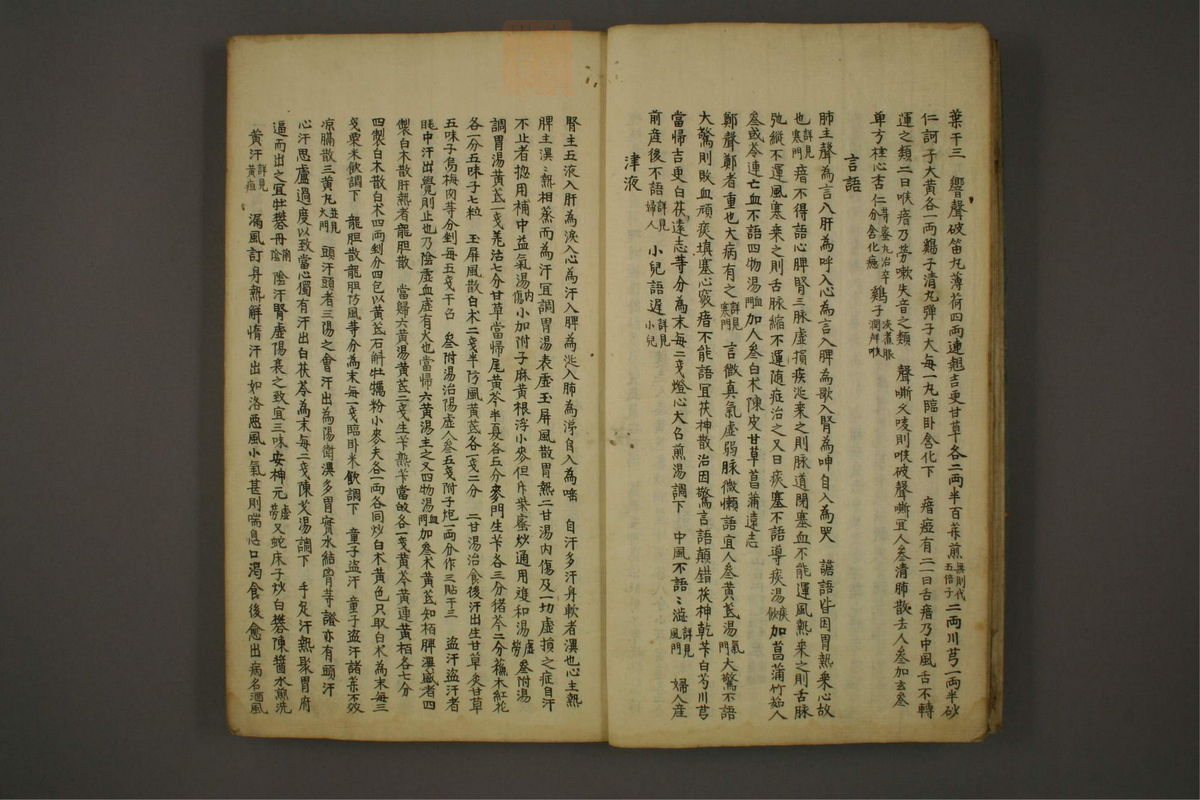 葉干三 響聲破笛丸薄荷四兩連翹吉更甘草各二兩半百藥煎無則代五倍子二兩川芎一兩半砂
仁訶子大黃各一兩鷄子清丸彈子大每一丸臨卧含化下 瘖瘂有二一曰舌瘖乃中風舌不轉
運之類二曰喉瘖乃勞嗽失音之類 聲嘶火唛則喉破聲嘶宜人參清肺散去人參加玄參
单方桂心杏仁等蜜丸治卒分含化瘾 鷄子潤解喉
言語
肺主聲為言入肝為呼入心為言入脾為歌入腎為呻自入為哭 譫語皆因胃熱乘心故
也詳見寒門 瘖不得語心脾腎三脉虛損痰涎乘之則脉道閉塞血不能運風熱乘之則舌脉
弛縱不運風塞乘之則舌脉縮不運随症治之又曰痰塞不語導痰湯痰飲加菖蒲竹茹人
參或苓連亡血不語四物湯血門加人參白朮陳皮甘草菖蒲遠志
鄭聲鄭者重也大病有之詳見寒門 言微真氣虛弱脉微懶語宜人參黃芪湯氣門大驚不語
大驚則敗血頑痰填塞心竅瘖不能語宜茯神散治因驚言語顛錯茯神乾芐白芍川芎
當帰吉更白茯遠志等分為末每二戔燈心大召煎湯調下 中風不語ミ澁詳見風門 婦人産
前産後不語詳見婦人 小兒語迟詳見小兒
津液
腎主五液入肝為淚入心為汗入脾為涎入肺為涕自入為唾 自汗多汗身軟者濕也心主熱
脾主濕ミ熱相蒸而為汗宜調胃湯表虛玉屏風散胃熱二甘湯内傷及一切虛損之症自汗
不止者揔用補中益氣湯内傷小加附子麻黃根浮小麥但升柴蜜炒通用雄和湯虛勞參附湯
調胃湯黃芪一戔羌活七分甘草當帰尾黃芩半夏各五分麥門生芐各三分猪苓二分蘓木紅花
各一分五味子七粒 玉屏風散白朮二戔半防風黃芪各一戔二分 二甘湯治食後汗出生甘草炙甘草
五味子烏梅肉等分剉每五戔干召 參附湯治陽虛人參五戔附子炮一兩分作三貼干三 盜汗盜汗者
眊中汗出覺則止也乃陰虛血虛有火也當帰六黃湯主之又四物湯血門加參朮黃芪知栢脾濕盛者四
製白朮散肝熱者龍胆散 當歸六黃湯黃芪二戔生芐熟芐當故各一戔黃芩黃連黃栢各七分
四製白朮散白朮四兩剉分四包以黃芪石斛牡蠣粉小麥夫各一兩各同炒白朮黃色只取白朮為末每三
戔粟米飲調下 龍胆散龍胆防風等分為末每一戔臨卧米飲調下 童子盜汗童子盜汗諸藥不效
凉膈散三黃丸並見大門 頭汗頭者三陽之會汗出為陽衛濕多胃實水結胷等證亦有頭汗
心汗思慮過度以致當心獨有汗出白茯苓為末每二戔陳艾湯調下 手足汗熱聚胃府
逼而出之宜牡礬丹前陰 陰汗腎虛陽衰之致宜三味安神元虛勞又蛇床子炒白礬陳醬水煎洗
黃汗詳見黃疸 漏風訂身熱解惰汗出如洛惡風小氣甚則喘息口渴食後愈出病名酒風